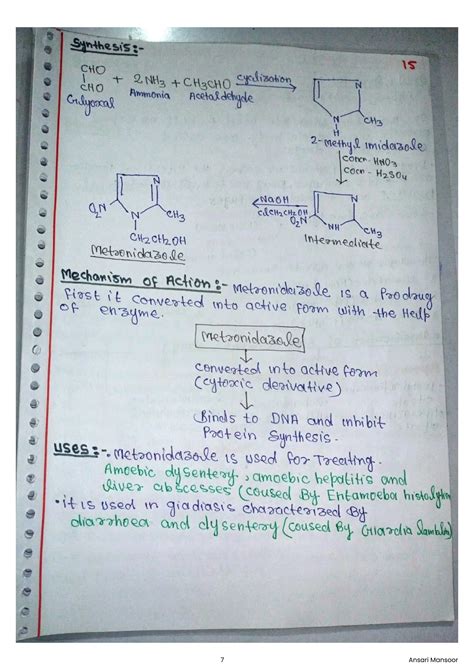 Synthesis:-
15
CHO
CHO + 2NH3 + CH3CHO cyclization
Glyoxal Ammonia Acetaldehyde
N
N
H
CH3
2-Methyl imidazole
conc- HNO3
cocn- H2SO4
N
O2N
N
CH3
CH2CH2OH
Metronidazole
NaOH
clCH2CH2OH
N
O2N
NH
CH3
Intermediate
Mechanism of Action:- Metronidazole is a Prodrug
first it converted into active form with the Help
of enzyme.
Metronidazole
converted into active form
(cytoxic derivative)
Binds to DNA and inhibit
Protein Synthesis.
uses:- Metronidazole is used for Treating.
Amoebic dysentery, amoebic hepatitis and
liver abscesses (caused By Entamoeba histolytica
• it is used in giadiasis characterized By
diarrhoea and dysentery (caused By Giardia lamblia)
7
Ansari Mansoor